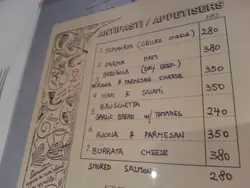 ANTIPASTI / APPETISERS
NRS
1. SCAMORZA (GRILLED CHEESE) 280
2. PARMA HAM 380
BRESAOLA (DRY BEEF)
RUCOLA & PARMESAN CHEESE 350
4. HAM & SALAMI 350
5. BRUSCHETTA
GARLIC BREAD w/ TOMATOES 240
6. RUCOLA & PARMESAN 350
7. BURRATA CHEESE 380
SMOKED SALMON 280